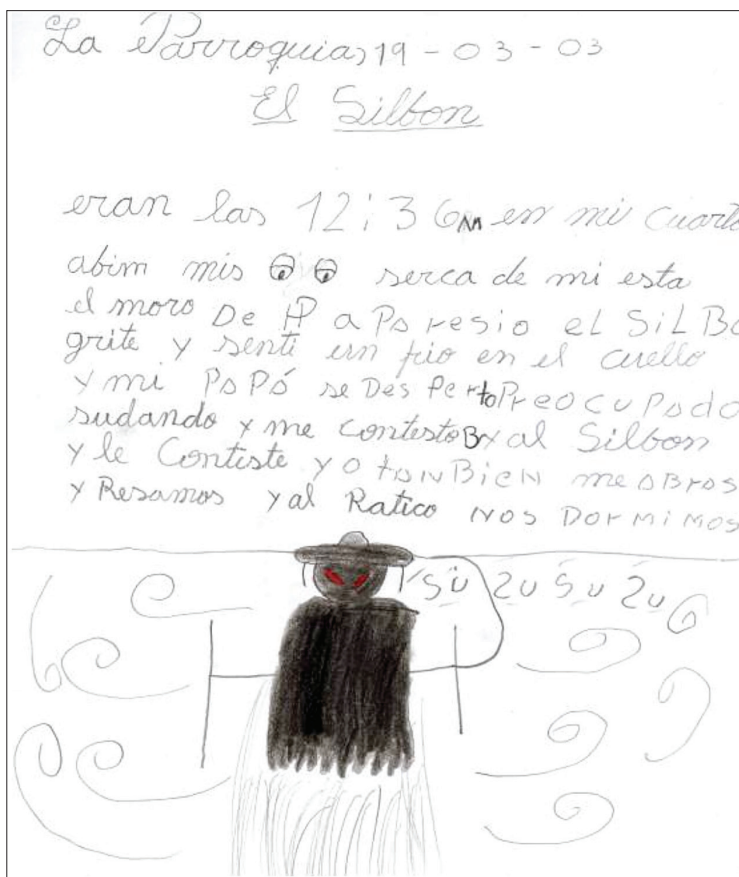 La Parroquia, 19-03-03
El Silbon
eran las 12:36 m en mi cuarto
abim mis serca de mi esta
el moro De P aParesio eL SiLBo
grite y senti un frio en el cuello
y mi PaPá se Des Perto PreocuPado
sudando y me contesto al Silbon
y le Conteste yo tanBien me aBras
y Resamos y al Ratico NOS DorMiMOS
Su Zu Su Zu